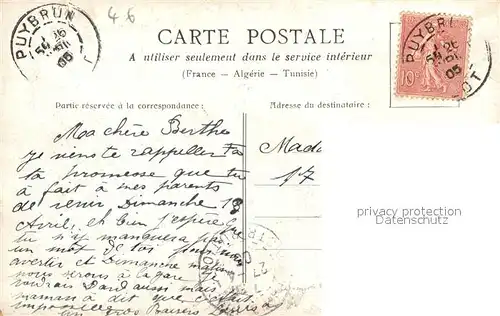 46
PUYBRUN
26
05
CARTE POSTALE
A utiliser seulement dans le service intérieur
(France - Algérie - Tunisie)
PUYBR
26
05
LOT
10c
Partie réservée à la correspondance :
Adresse du destinataire :
Ma chère Berthe
je viens te rappeller
ta promesse que tu
à fait à mes parents
de venir Dimanche 18
Avril, et bien j'espère que
tu n'y manquera pas
un mot de toi pour
avertir et Dimanche matin
nous serons à la gare je
voudrais aussi mais
maman à dit que c'était
impossible
un gros Baisers
Made
17
privacy protection
Datenschutz